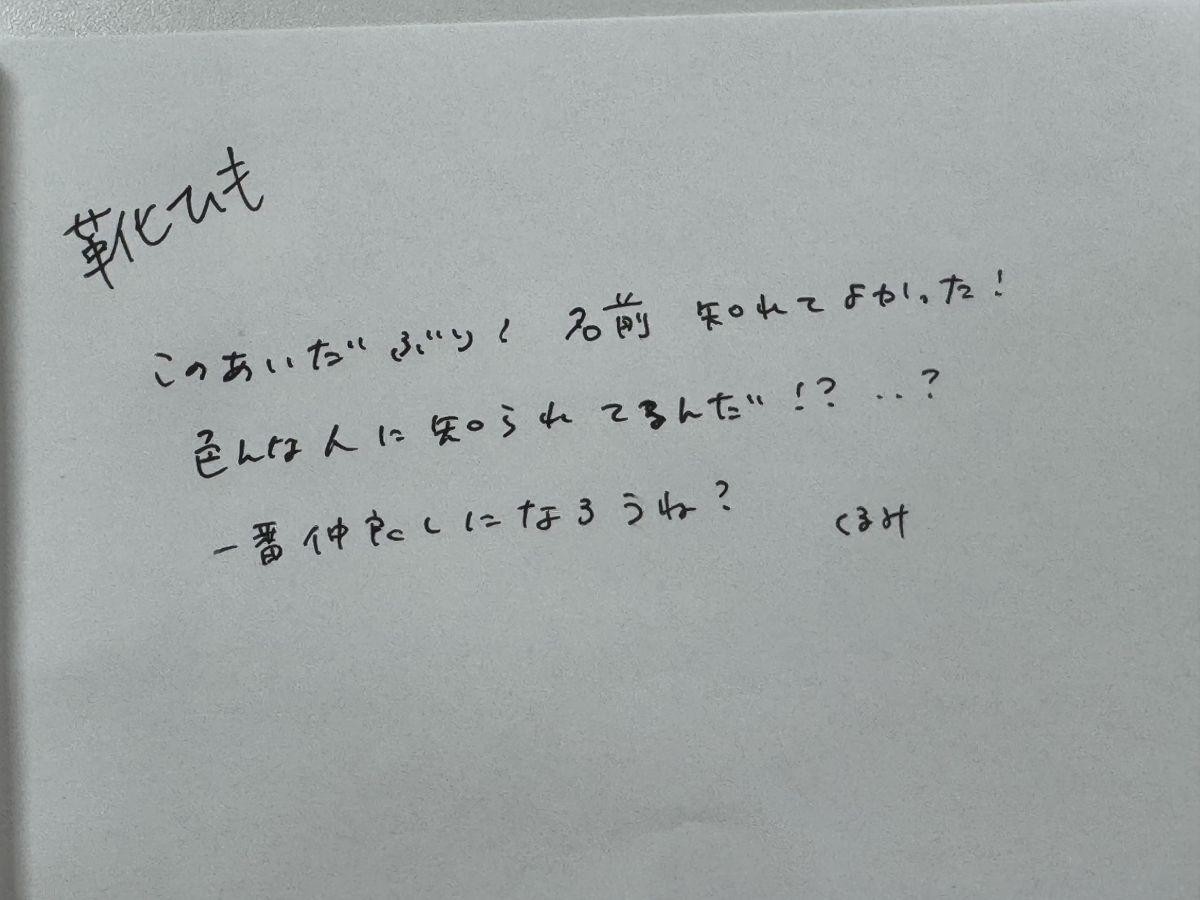 靴ひも
このあいだぶり〜 名前 知れてよかった!
色んな人に知られてるんだ!? ..?
一番仲良しになろうね? くるみ